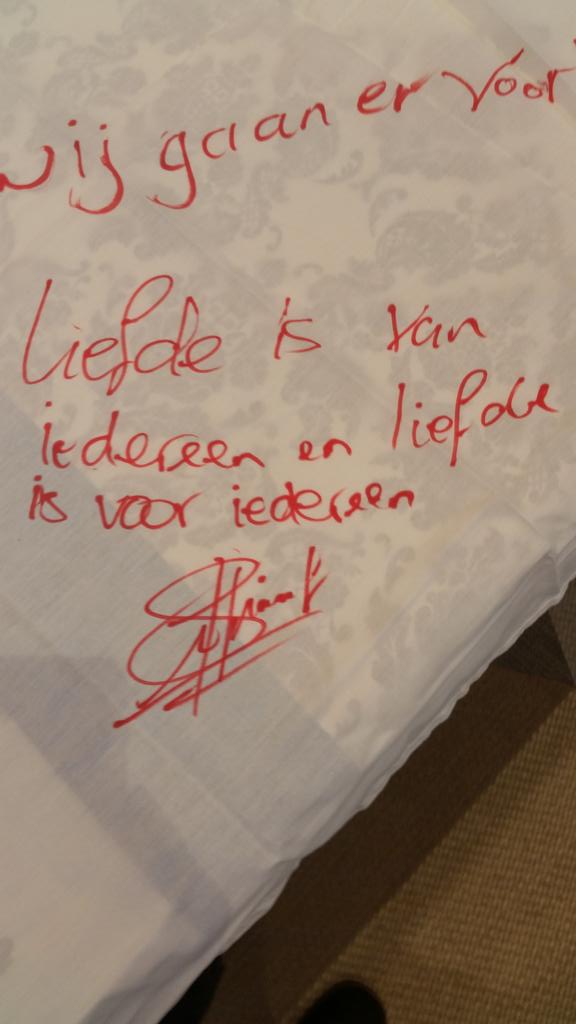 wij gaan er vóór
liefde is van
iedereen en liefde
is voor iedereen